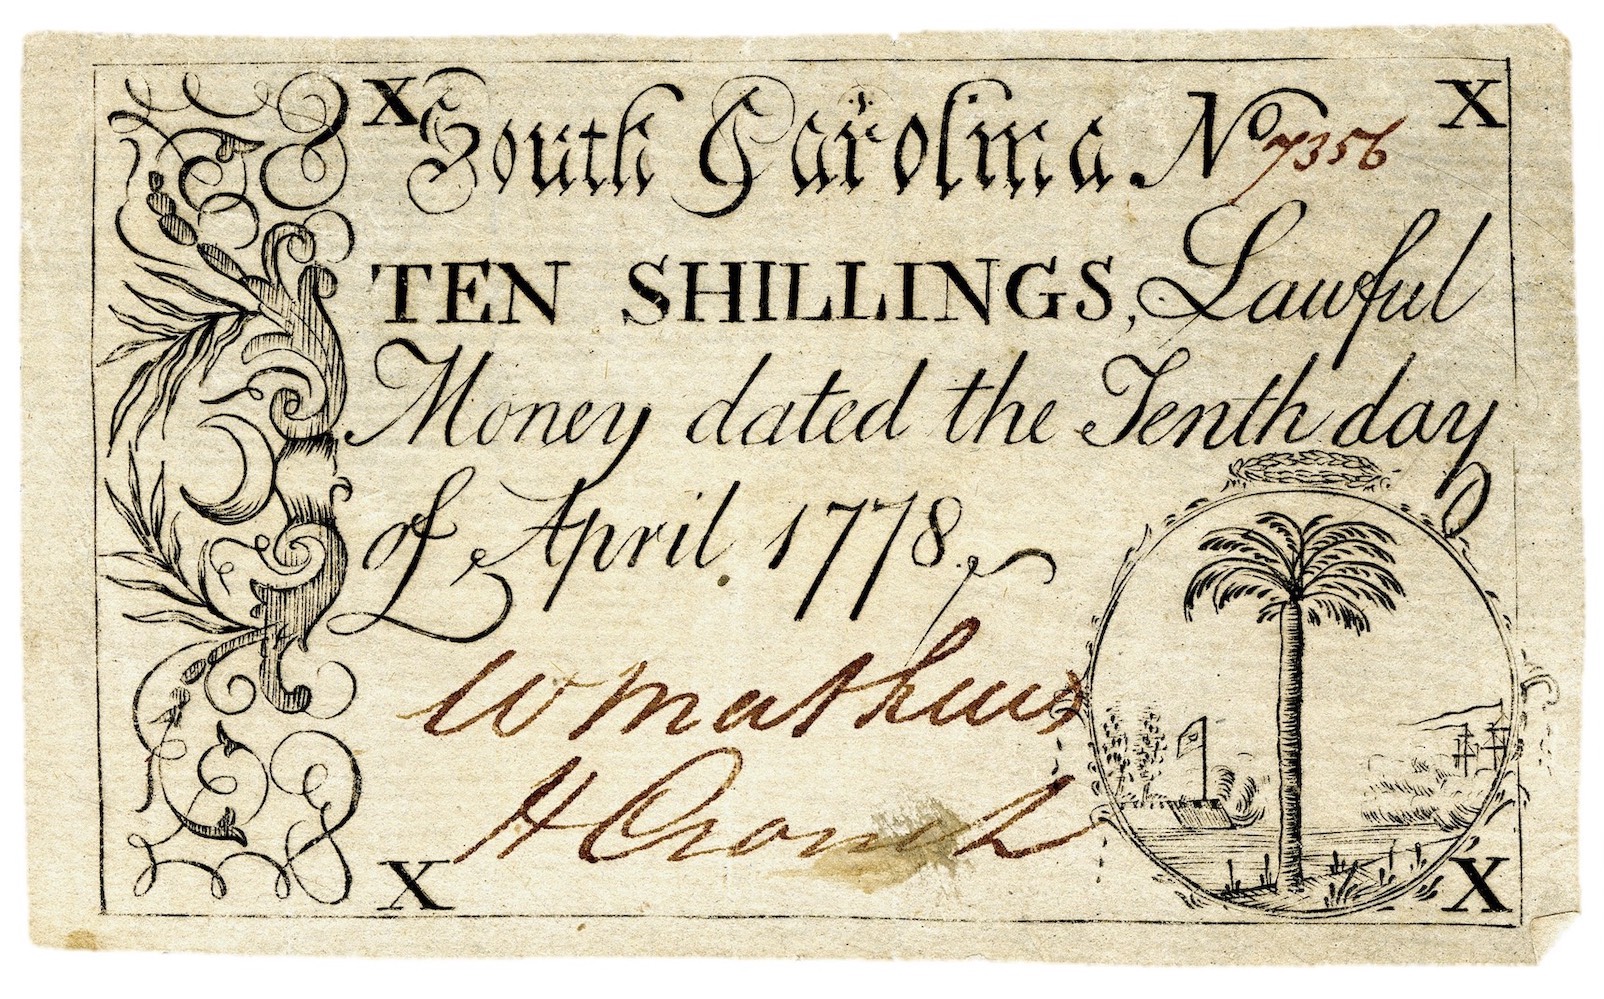 X South Carolina. No 7356 X
TEN SHILLINGS, Lawful
Money dated the Tenth day
of April. 1778.
W Mathews
H Crouch
X X